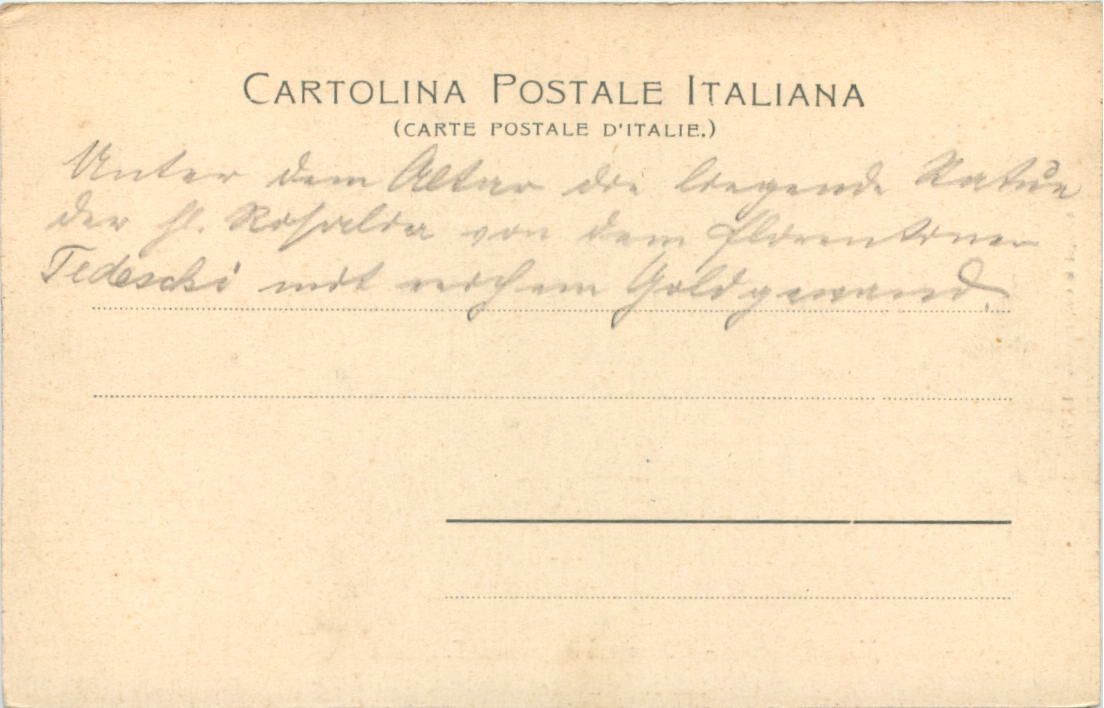 CARTOLINA POSTALE ITALIANA
(CARTE POSTALE D'ITALIE.)
Unter dem Altar die liegende Statue
der hl. Rosalia von dem florentiner
Tedeschi mit reichem Goldgewand.